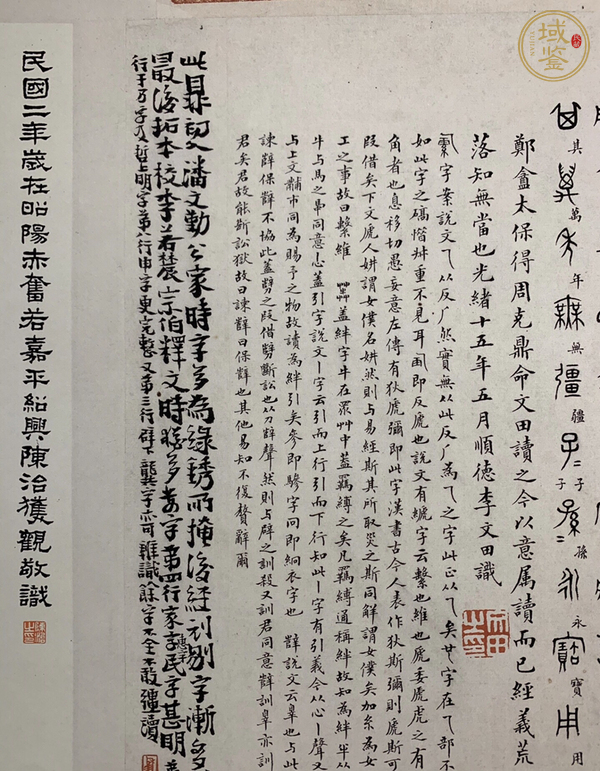 其萬年無疆子子孫永寶用
鄭盦太保得周克鼎命文田讀之今以意属讀而已經義荒
落知無當也光緒十五年五月順德李文田識
字案說文乁从反厂然實無从此反厂為乁之字此正从乁矣字在乁部不
如此字之碻惜艸重不見耳即反虒也說文有字云繫也維也虒委虒虎之有
角者也息移切愚妄意左傳有狄虒彌即此字漢書古今人表作狄斯彌則虒斯可
叚借矣下文虒人姘謂女僕名姘然則与易經斯其所取災之斯同解謂女僕矣加糸為女
工之事故曰繫維 蓋絆字牛在眾艸中蓋羈縛之矣凡羈縛通稱絆故知為絆牛从
牛与馬之同意 蓋引字說文丨字云引而上行引而下行知此丨字有引義今从心丨聲又
与上文黼市同為賜予之物故讀為絆引矣參即驂字冋即絅衣字也 辥說文云辠也与此
諫辥保辥不協此蓋之叚借斷訟也从刀辥聲然則与辟之訓殺又訓君同意辥訓辠亦訓
君矣君故能斷訟獄故曰諫辥曰保辥也其他易知不復贅辭爾
此鼎初入潘文勤公家時字多為綠銹所掩後經刮剔字漸多
最後拓本校李若農宗伯釋文時賸多數字第四行家字民字甚明
行于乃字及哲上明字第八行申字更完整又第三行辟下龔字亦可雖識餘字不全不敢彊讀
民國二年歲在昭陽赤奮若嘉平紹興陳治獲觀敬識
域鑒
YUJIAN